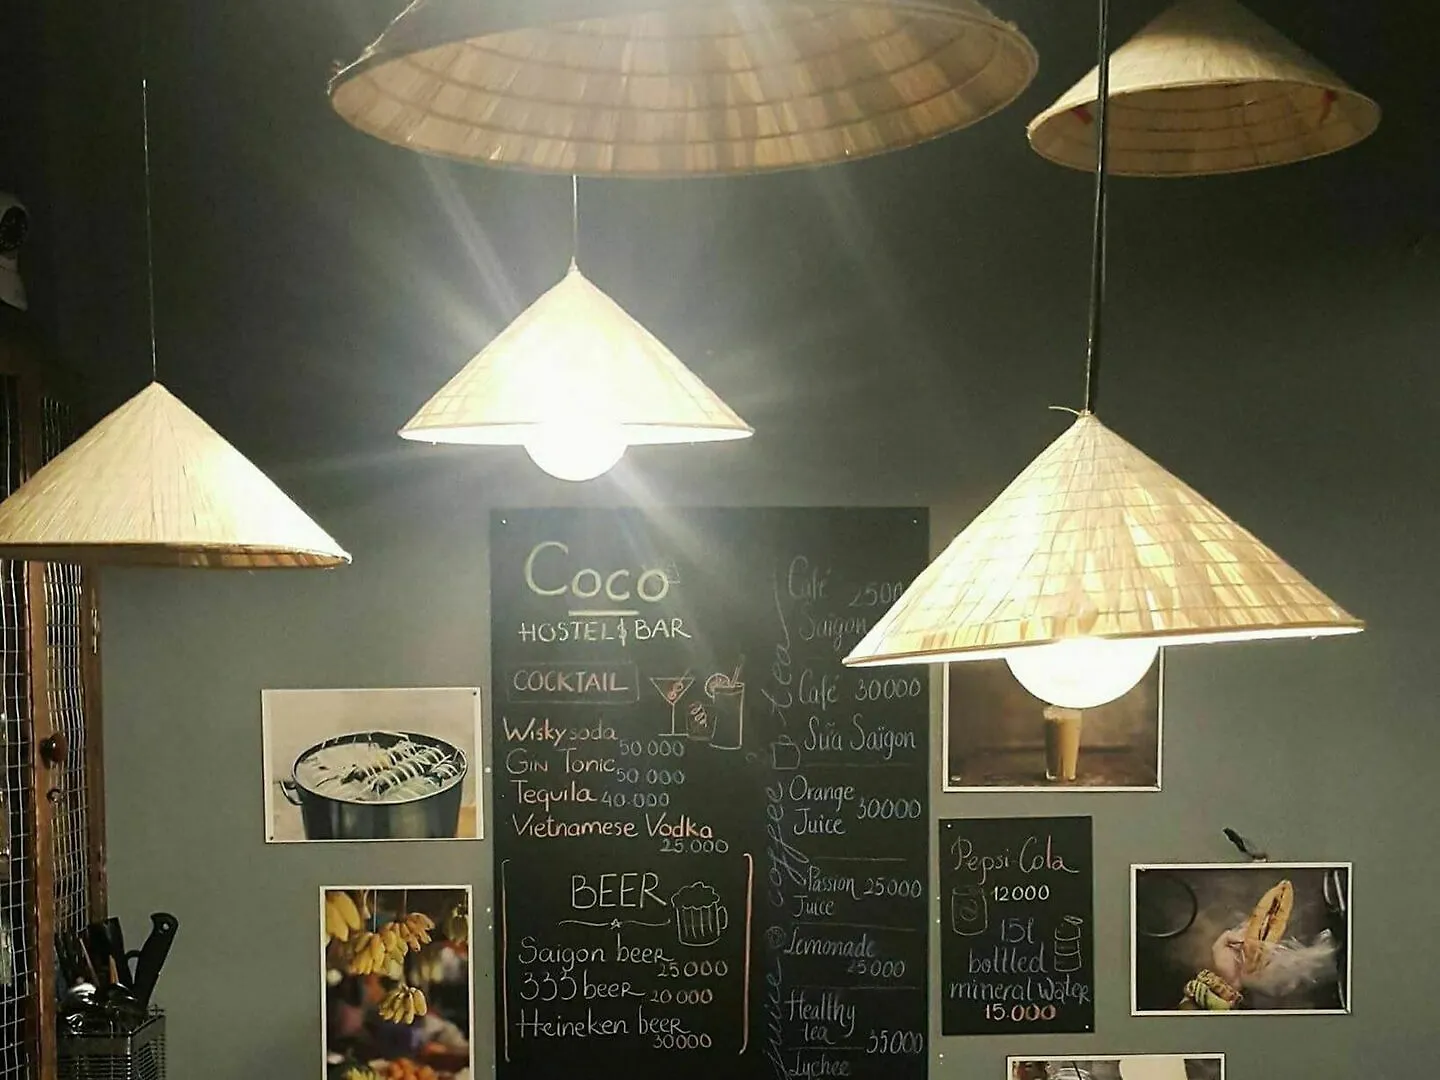 Coco
HOSTEL & BAR
COCKTAIL
Wisky soda 50.000
Gin Tonic 50 000
Tequila 40.000
Vietnamese Vodka
25.000
BEER
Saigon beer
25000
333 beer 20 000
Heineken beer
30000
juice coffee tea
Café 2500
Saigon
Café 30000
Sữa Saigon
Orange
Juice 30000
Passion 25000
Juice
Lemonade
25000
Healthy
tea 35000
Lychee
Pepsi-Cola
12000
15l
bottled
mineral water
15.000